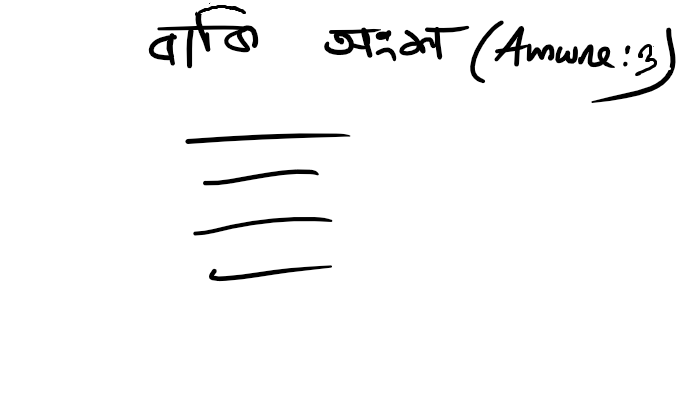 বাকি অংশ (Answre : 3)